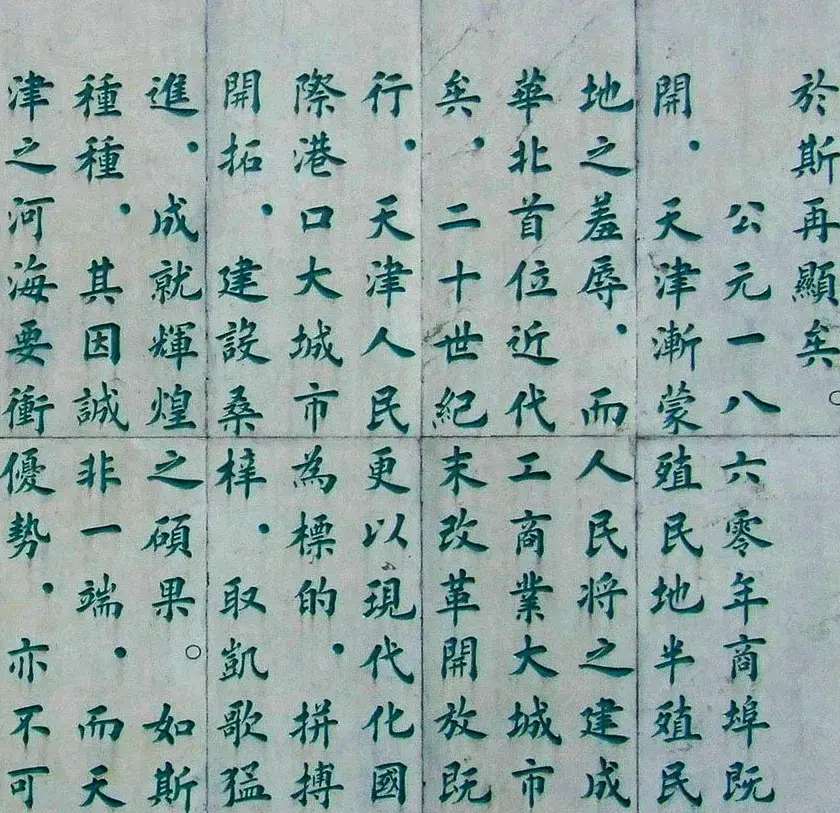 於斯再顯矣。
公元一八六零年商埠既
開，天津漸蒙殖民地半殖民
地之羞辱，而人民將之建成
華北首位近代工商業大城市
矣，二十世紀末改革開放既
行，天津人民更以現代化國
際港口大城市為標的，拼搏
開拓，建設桑梓，取凱歌猛
進，成就輝煌之碩果。如斯
種種，其因誠非一端，而天
津之河海要衝優勢，亦不可